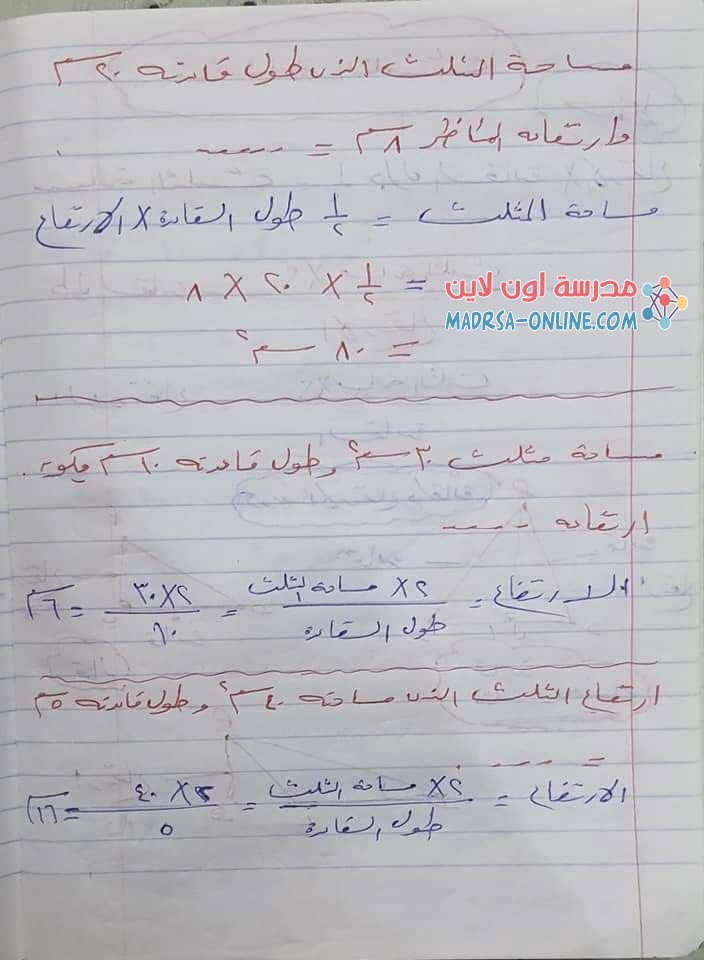 مساحة المثلث الذى طول قاعدته ٢٠ سم
وارتفاعه المناظر ٨ سم = .....
مساحة المثلث = ١/٢ طول القاعدة × الارتفاع
= ١/٢ × ٢٠ × ٨
مدرسة اون لاين
MADRSA-ONLINE.COM
= ٨٠ سم٢
مساحة مثلث ٣٠ سم٢ وطول قاعدته ١٠ سم يكون
ارتفاعه .....
الارتفاع = ٢ × مساحة المثلث / طول القاعدة = ٢ × ٣٠ / ١٠ = ٦ سم
ارتفاع المثلث الذى مساحته ٤٠ سم٢ وطول قاعدته ٥ سم
= .....
الارتفاع = ٢ × مساحة المثلث / طول القاعدة = ٢ × ٤٠ / ٥ = ١٦ سم